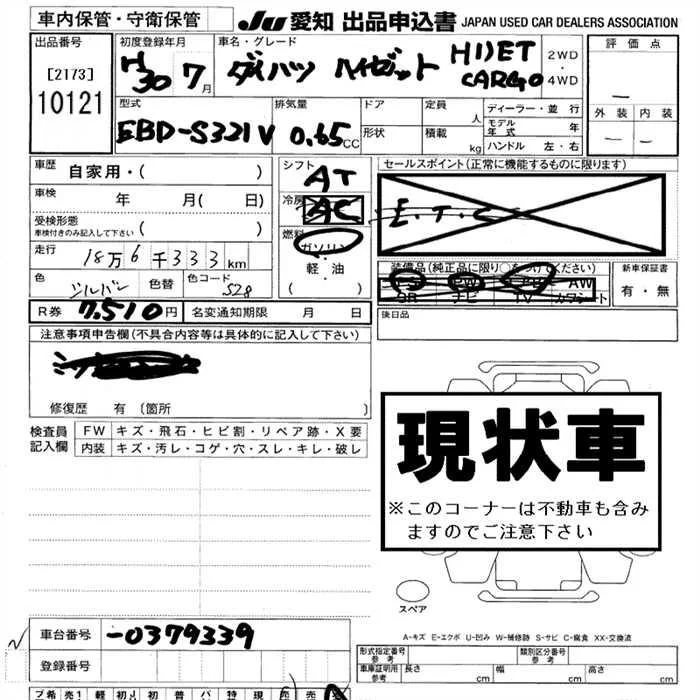 車内保管・守衛保管
JU 愛知 出品申込書 JAPAN USED CAR DEALERS ASSOCIATION
出品番号
[2173]
10121
初度登録年月
H30 7月
車名・グレード
ダイハツ ハイゼット HIJET CARGO
2WD・4WD
評価点
—
外装 内装
— —
型式
EBD-S321V
排気量
0.65CC
ドア
形状
定員 人
積載 kg
ディーラー・並行
モデル年式 年
ハンドル 左・右
車歴 自家用・( )
車検 年 月( 日)
受検形態
車検付きのみ記入して下さい ( )
走行 18万6千333km
色 シルバー 色替 色コード S28
シフト AT
冷房 AC
燃料
ガソリン
(軽・油)
セールスポイント(正常に機能するものに限ります)
E.T.C
装備品(純正品に限り○をつけてください)
PS PW AW
SR ナビ TV カワシート
新車保証書
有・無
R券 7,510円 名変通知期限 月 日
後日品
注意事項申告欄(不具合内容等は具体的に記入して下さい)
修復歴 有 (箇所 )
検査員記入欄
FW キズ・飛石・ヒビ割・リペア跡・X要
内装 キズ・汚レ・コゲ・穴・スレ・キレ・破レ
現状車
※このコーナーは不動車も含み
ますのでご注意下さい
スペア
A-キズ E-エクボ U-凹み W-補修跡 S-サビ C-腐食 XX-交換済
車台番号 -0379339
登録番号
形式指定番号 参考
類別区分番号 参考
車庫証明用 参考 長さ cm 幅 cm 高さ cm